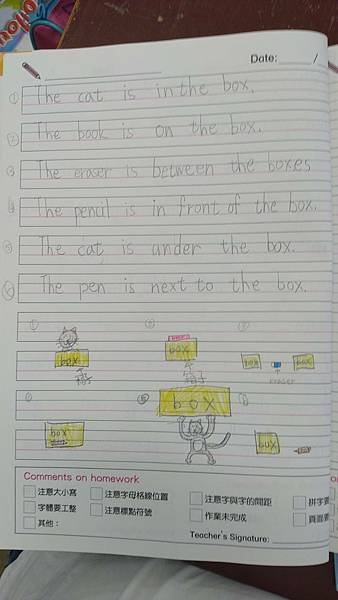 Date: /
① The cat is in the box.
② The book is on the box.
③ The eraser is between the boxes
④ The pencil is in front of the box.
⑤ The cat is under the box.
⑥ The pen is next to the box.
① ② ③
box box box box
箱子 箱子 eraser
④ ⑤ ⑥
box box box
Comments on homework
注意大小寫 注意字母格線位置 注意字與字的間距 拼字要
字體要工整 注意標點符號 作業未完成 頁面要
其他：
Teacher's Signature: